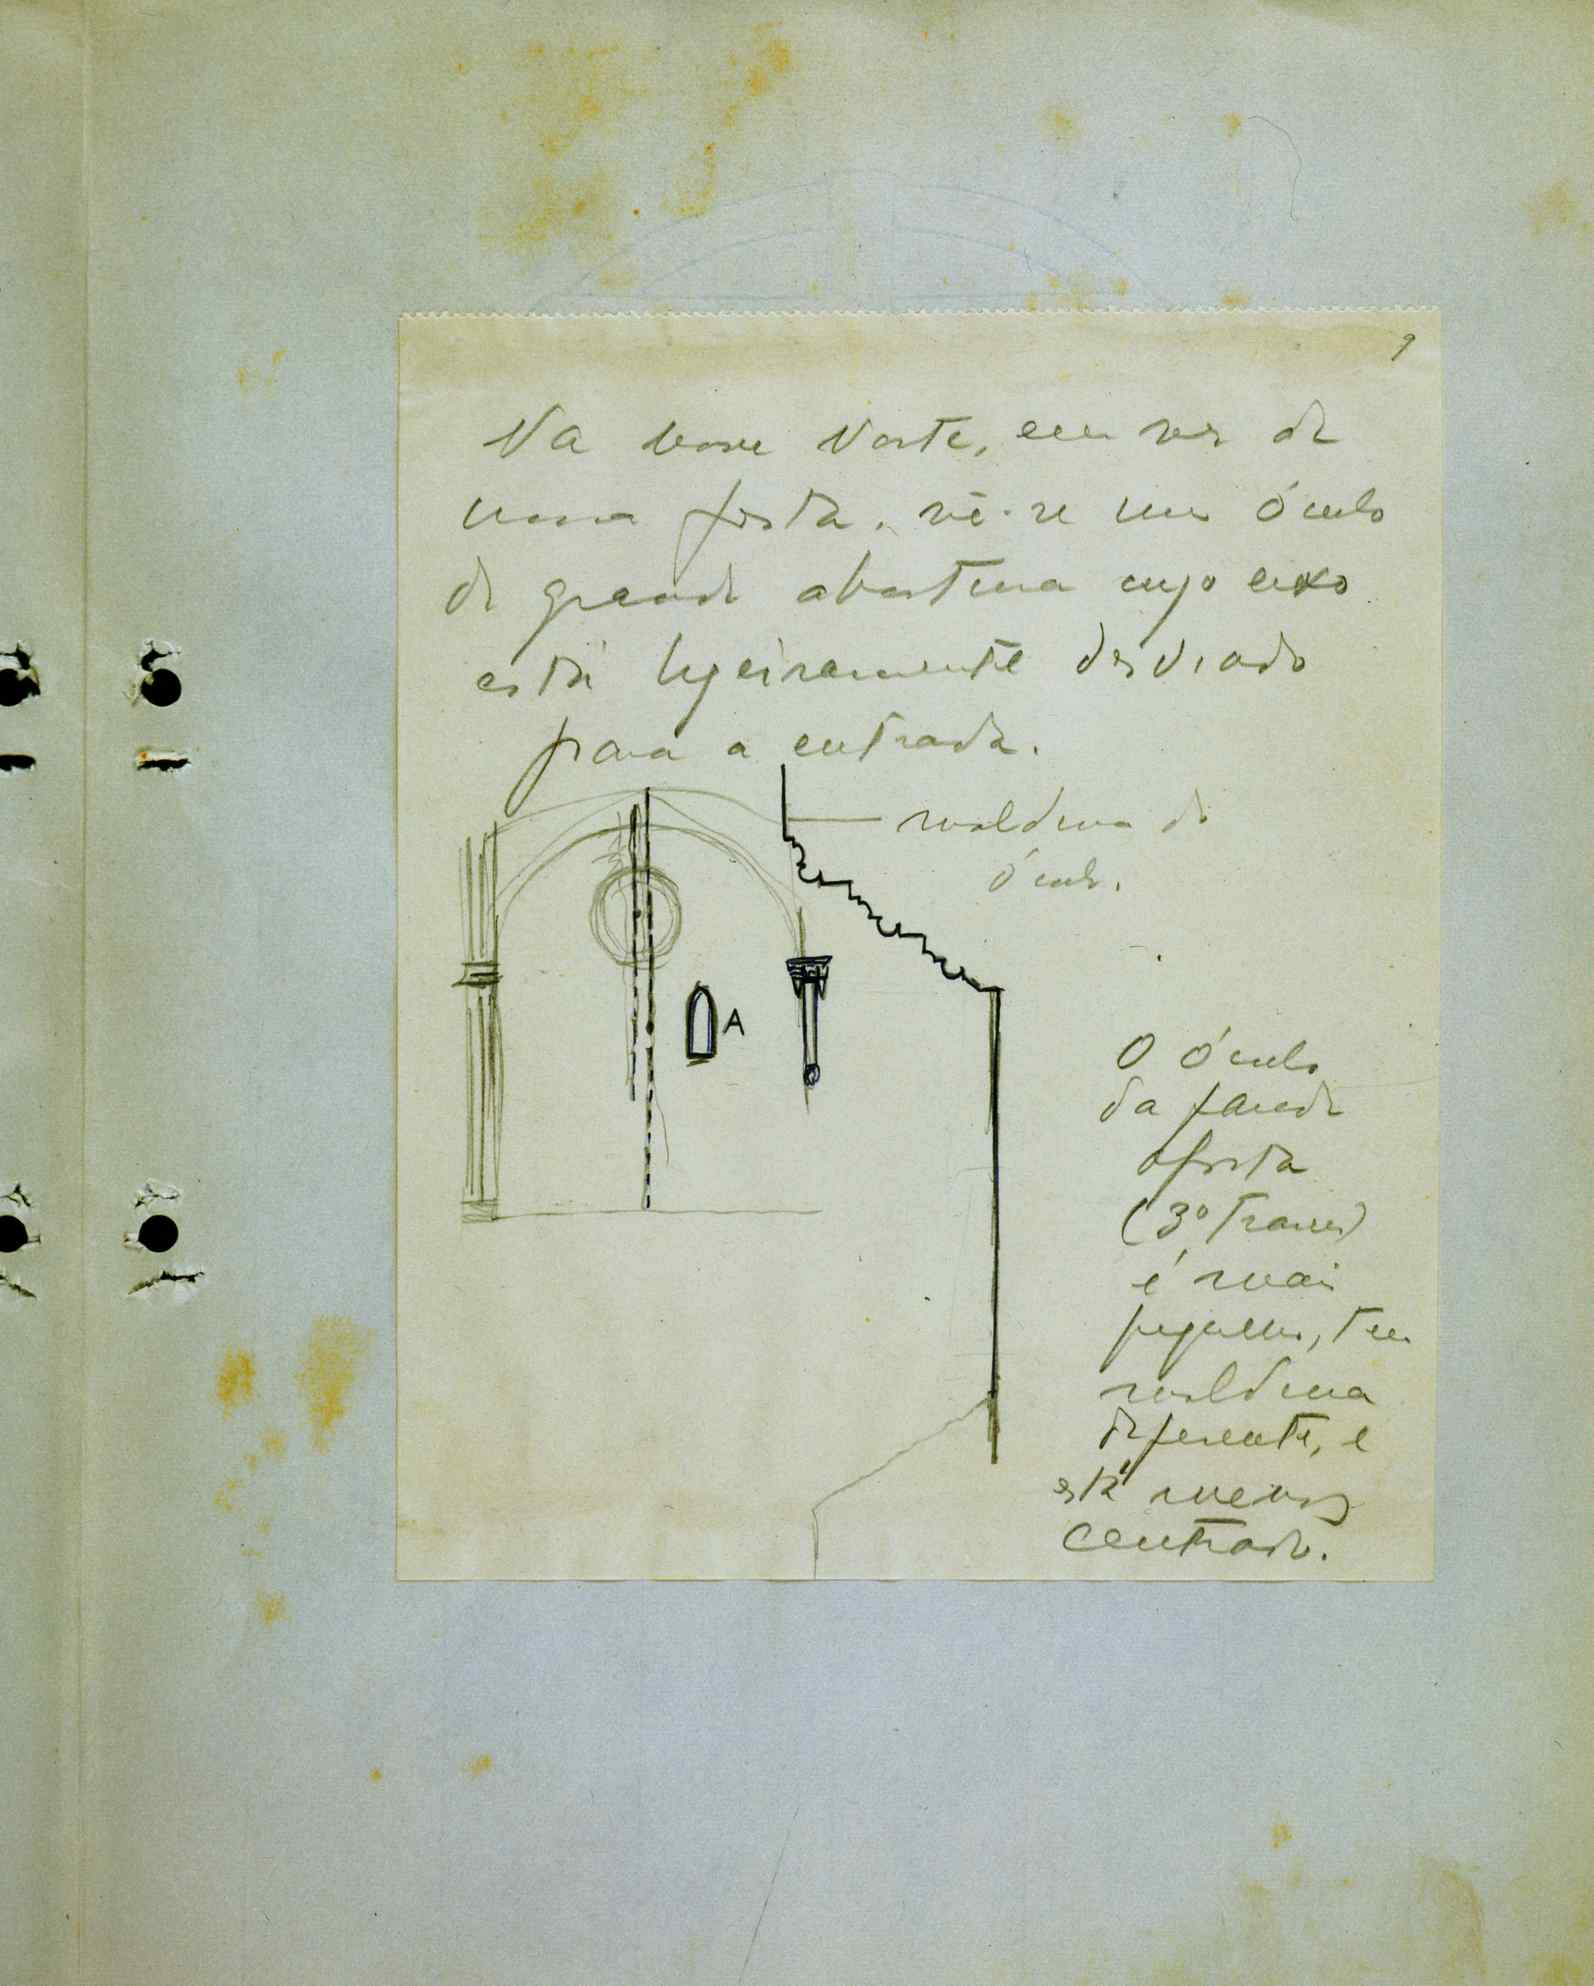 9
Na nave Norte, em vez de
uma fresta, vê-se um óculo
de grande abertura cujo eixo
está ligeiramente desviado
para a entrada.
moldura do
óculo.
A
O óculo
da parede
oposta
(3º tramo)
é mais
pequeno, tem
moldura
diferente, e
está menos
centrado.